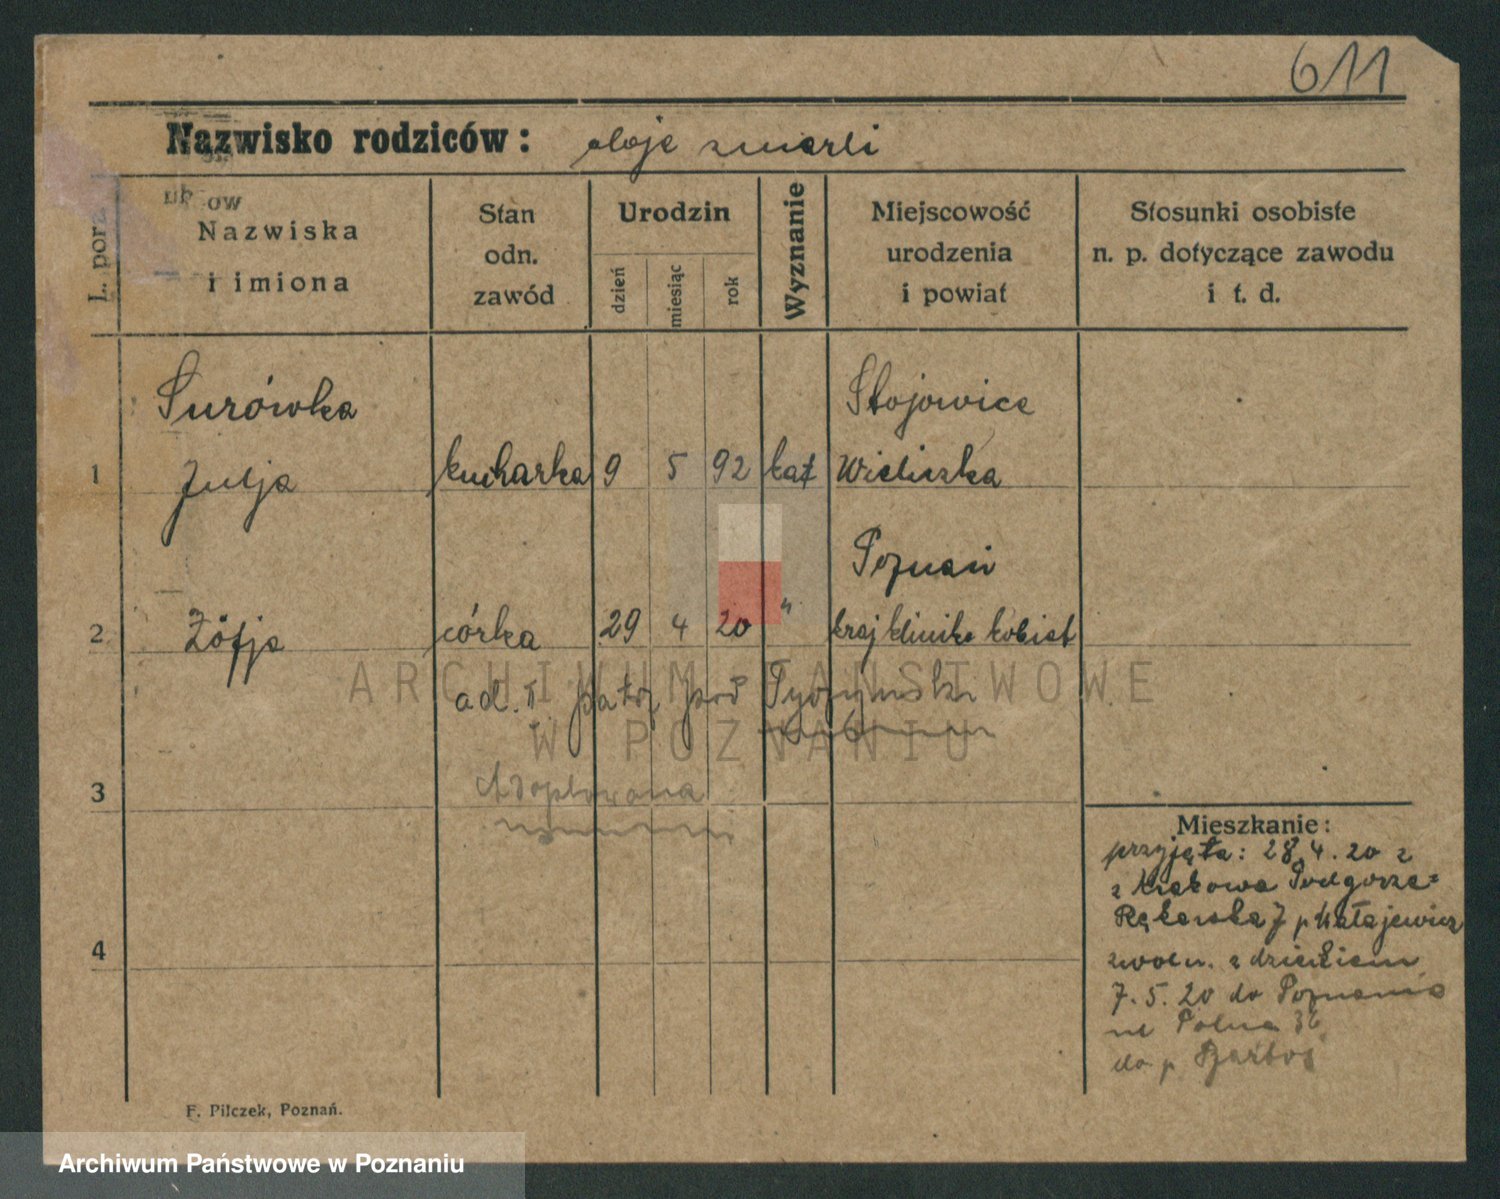 611
Nazwisko rodziców: oboje zmarli
L. porz.
Nazwiska
i imiona
Stan
odn.
zawód
Urodzin
dzień
miesiąc
rok
Wyznanie
Miejscowość
urodzenia
i powiat
Stosunki osobiste
n. p. dotyczące zawodu
i t. d.
Surówka Stojowice
1 Julja kucharka 9 5 92 kat Wieliczka
Poznań
2 Zofja córka 29 4 20 " kraj klinika kobiet
ad. II. patrz pod Tyczynski
Adoptowana
3
4
Mieszkanie:
przyjęta: 28.4.20 z
z Krakowa Podgorze=
Rękawka 7 p
zwoln. z dzieckiem
7.5.20 do Poznania
ul Polna 36
do p
F. Pilczek, Poznań.
ARCHIWUM PAŃSTWOWE
W POZNANIU
Archiwum Państwowe w Poznaniu